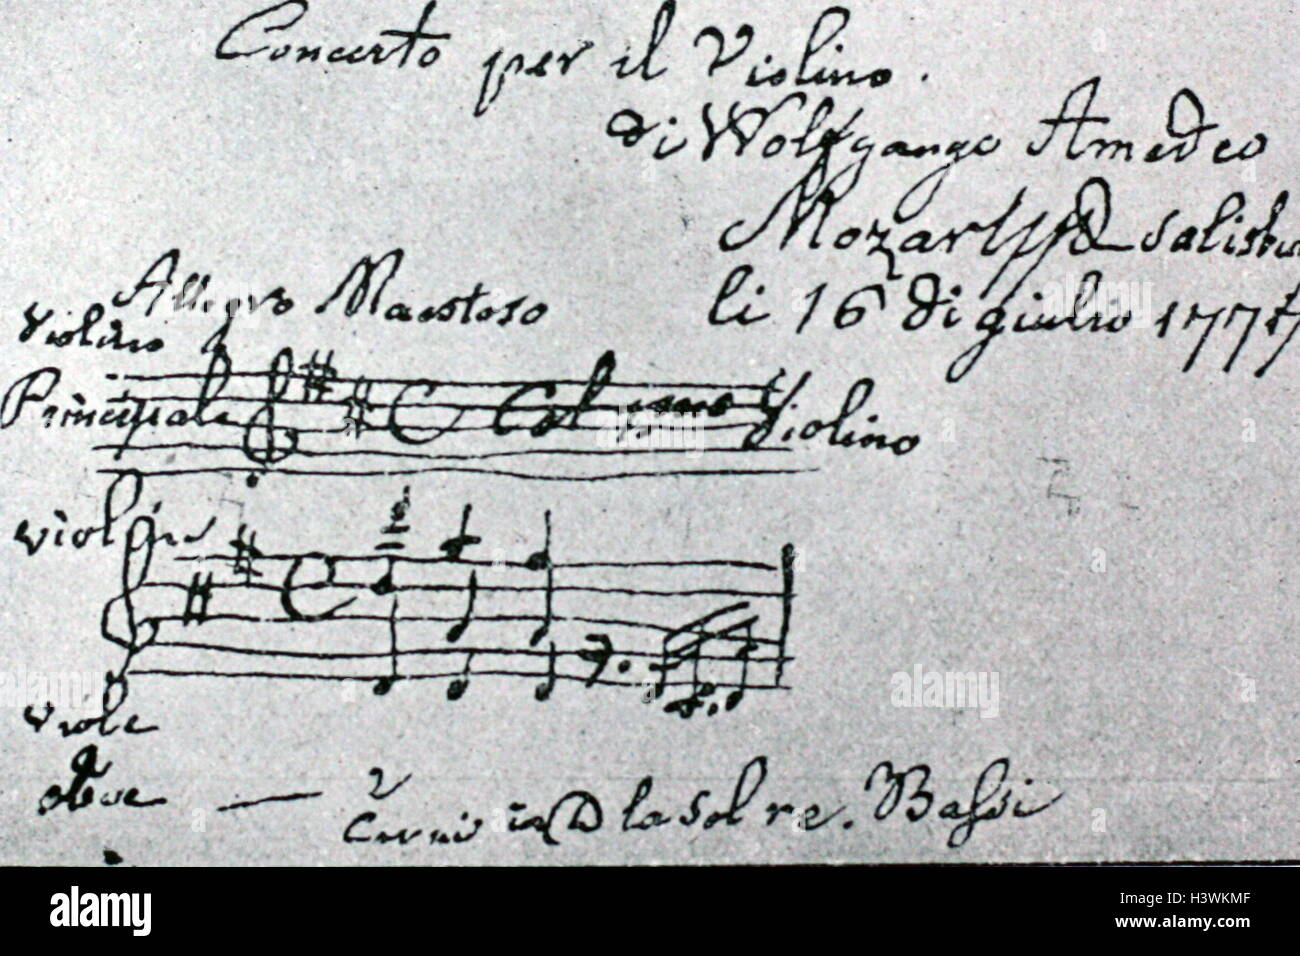 Concerto per il Violino.
di Wolfgango Amedeo
Mozart salisbu
li 16 di giulio 1777
Allegro Maestoso
Violino
Principale
Col primo Violino
violini
viole
2
oboe
2
Corni in D la sol re. Bassi
alamy
alamy
alamy
alamy
a
a
a
alamy
Image ID: H3WKMF
www.alamy.com